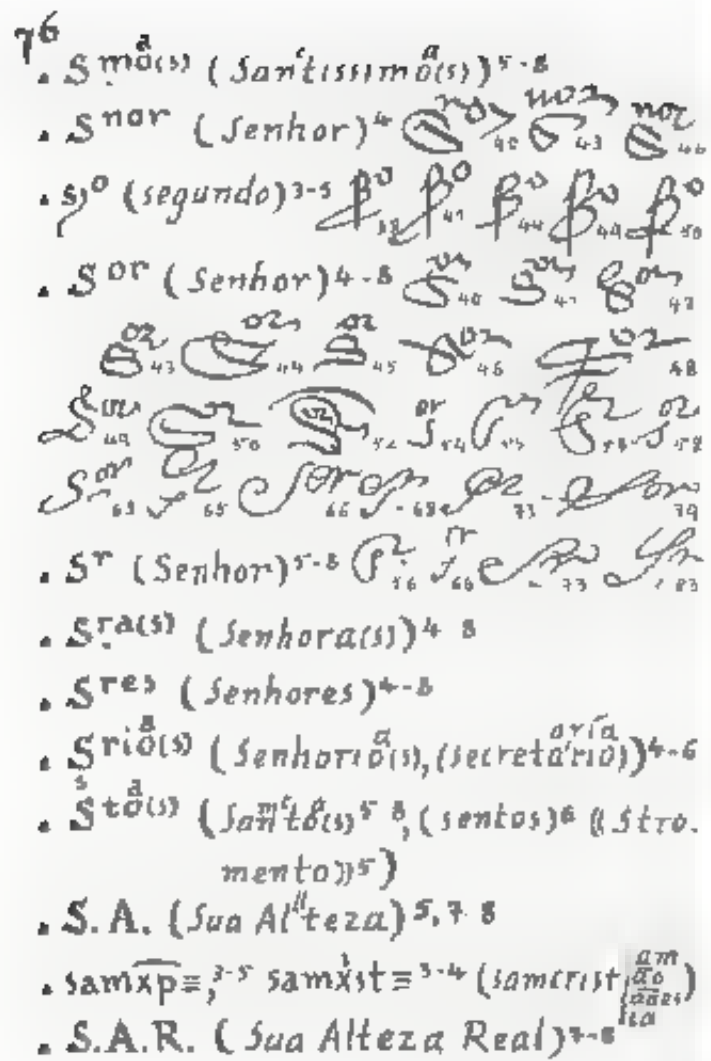 76
. Smo(s) (Santissimo(s)) 5-8
. Snor (Senhor) 4 nor 40 nor 43 nor 44
. so (segundo) 3-5 41 44 49 50
. Sor (Senhor) 4-8 40 41 42
43 44 45 46 48
49 50 52 54 58
Sor 63 65 66 68 73 79
. Sr (Senhor) 5-8 56 66 73 83
. Sra(s) (Senhora(s)) 4 8
. Sres (Senhores) 4-8
. Srio(s) (Senhorio(s), (secretario)) 4-6
. Sto(s) (Santo(s) 5 8, (sentos) 6 ((Stro.
mento)) 5)
. S.A. (Sua Alteza) 5, 7 8
. samxp≡, 3-5 samxst≡ 3-4 (samcrist am ao aaes ia)
. S.A.R. (Sua Alteza Real) 7-8